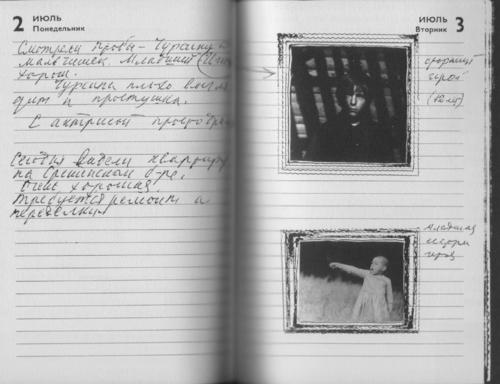 2 ИЮЛЬ
Понедельник
Смотрели пробы – Чурсину и
мальчишек. Младший
хорош.
Чурсина плохо выгля
дит и простушка.
С актрисой
Сегодня видели квартиру
на
Очень хорошая!
Требуется ремонт и
переделки
ИЮЛЬ 3
Вторник
старший
герой
младшая
сестра
героя